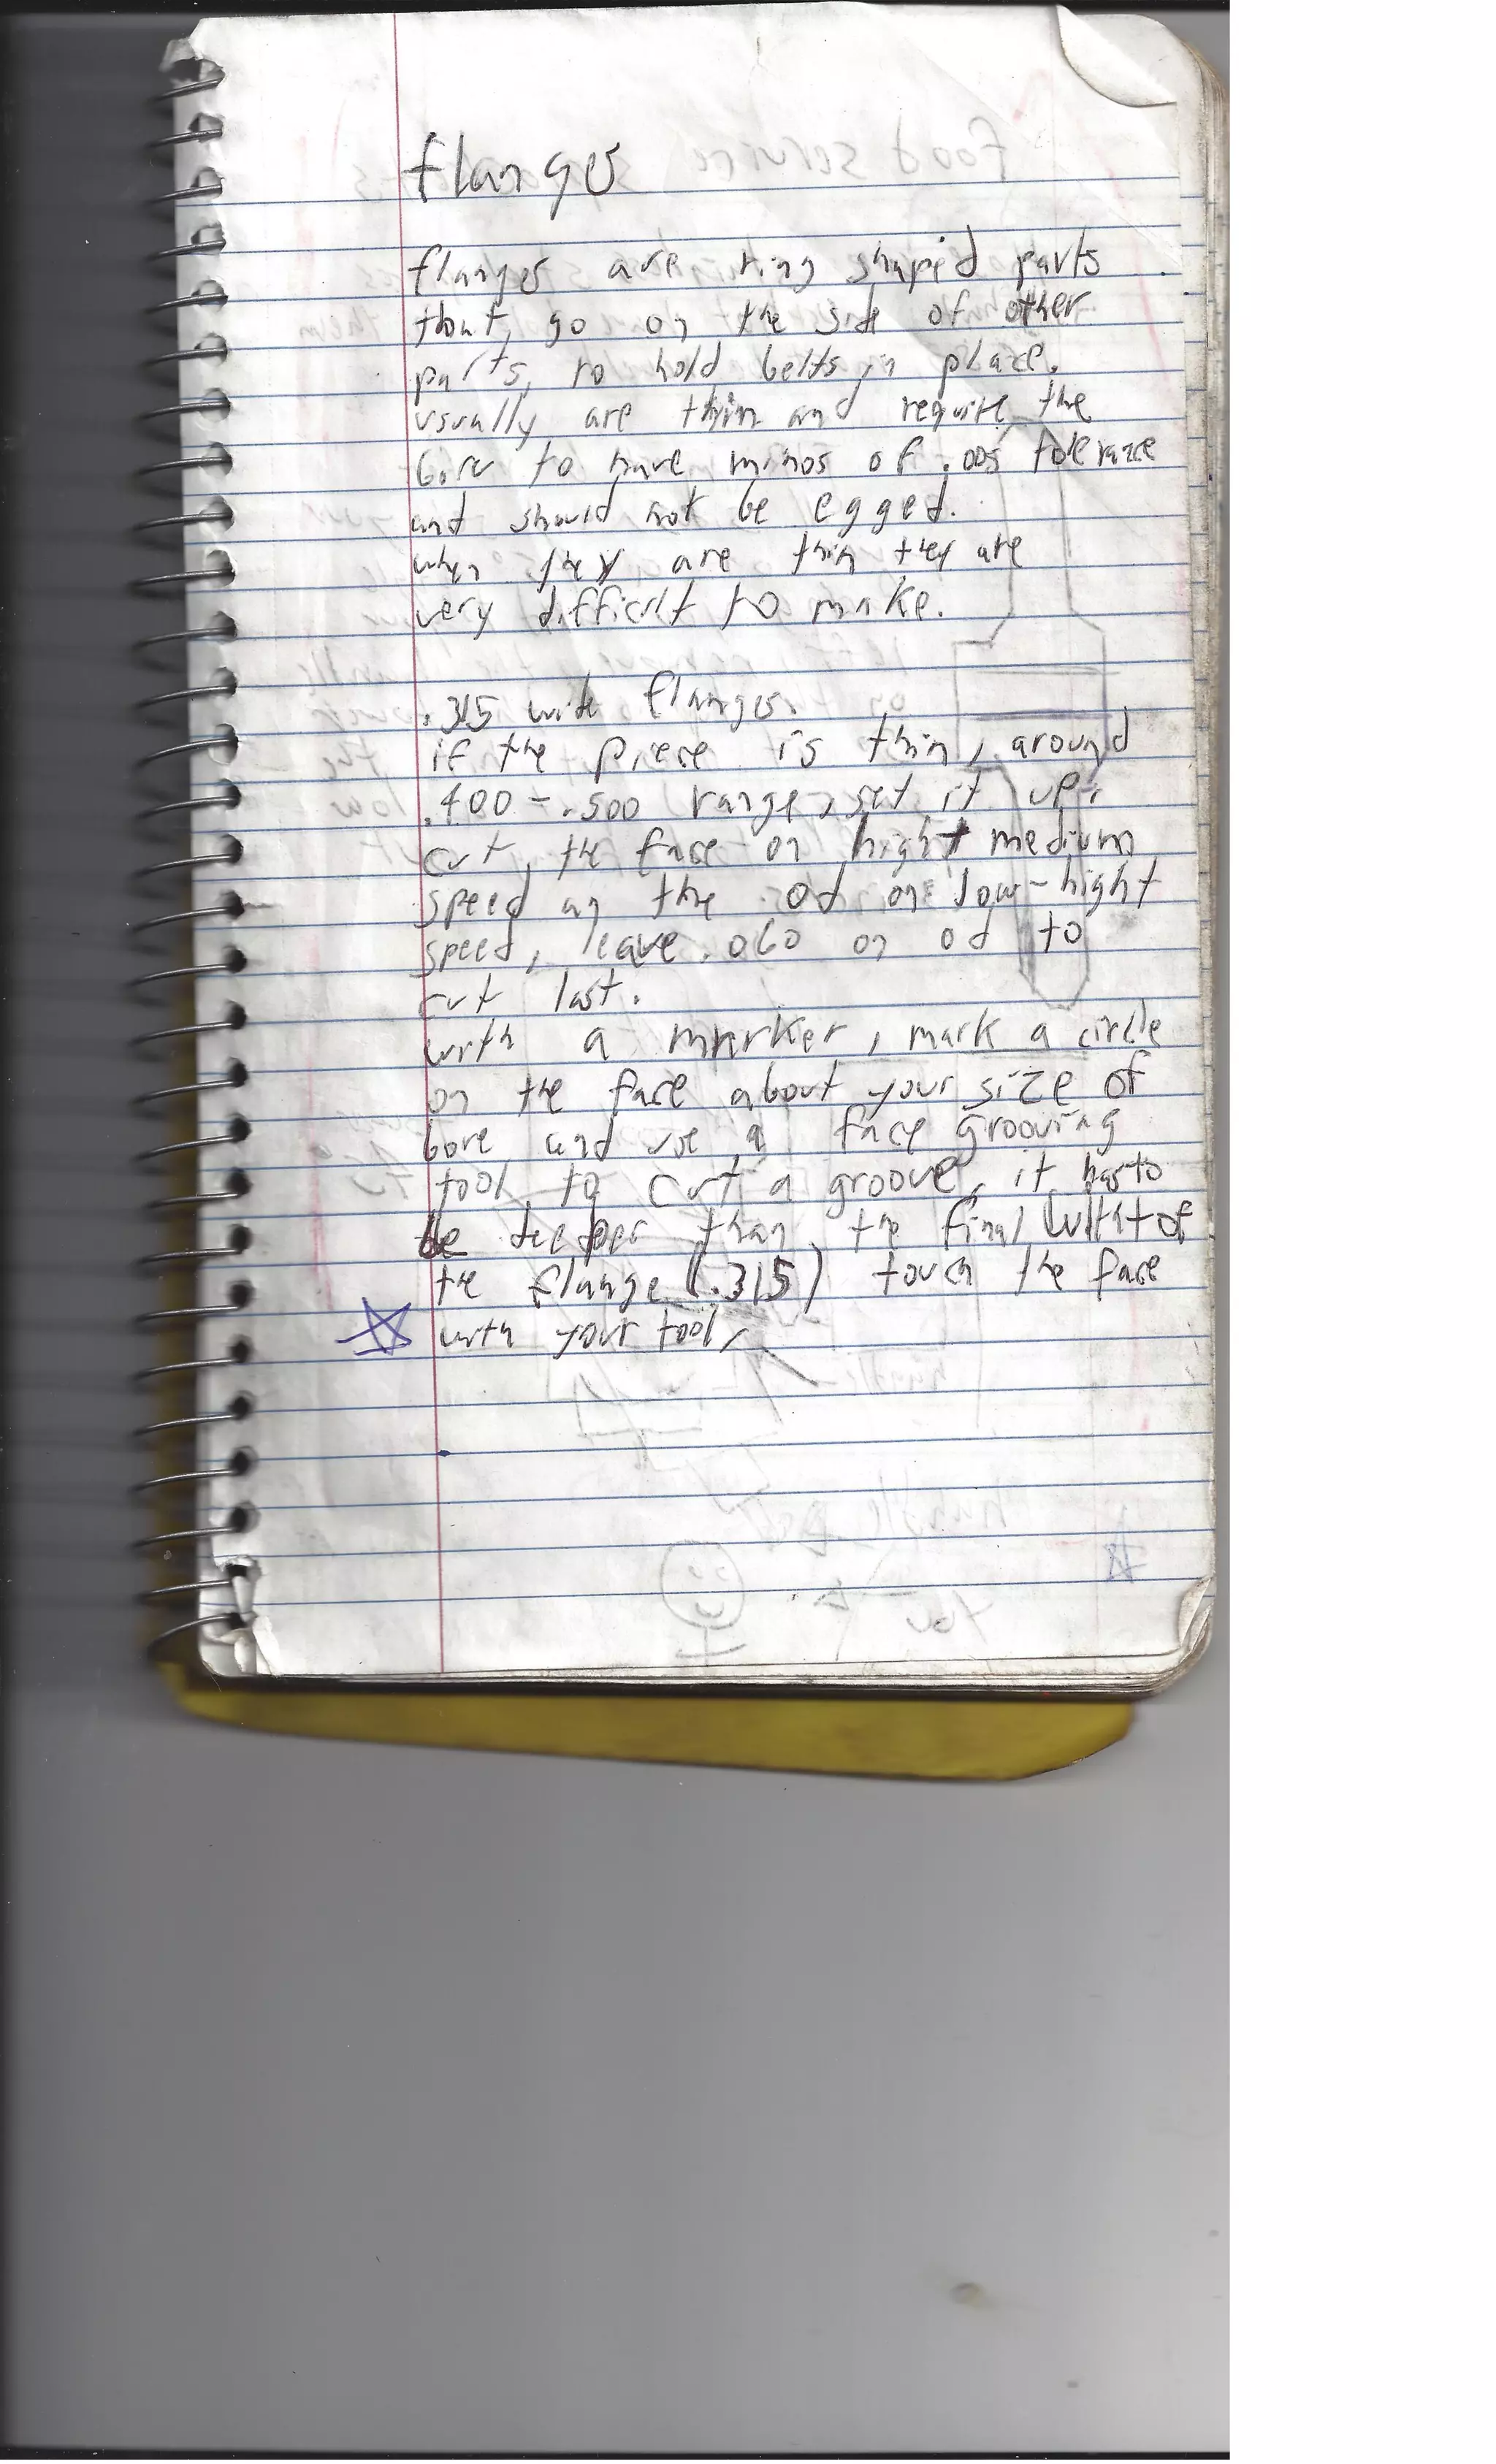 flanges
flanges are ring shaped parts
that go on the side of other
parts, to hold belts in place.
usually are thin and require the
bore to have minos of .005 tolerance
and should not be egged.
when they are thin they are
very difficult to make.
.315 wide flanges.
if the piece is thin, around
.400 - .500 range, set it up,
cut the face on hight medium
speed an the od on low-hight
speed, leave .060 on od to
cut last.
with a marker, mark a circle
on the face about your size of
bore and use a face grooving
tool to cut a groove, it has to
be deeper than the final of
the flange (.315) touch the face
with your tool,